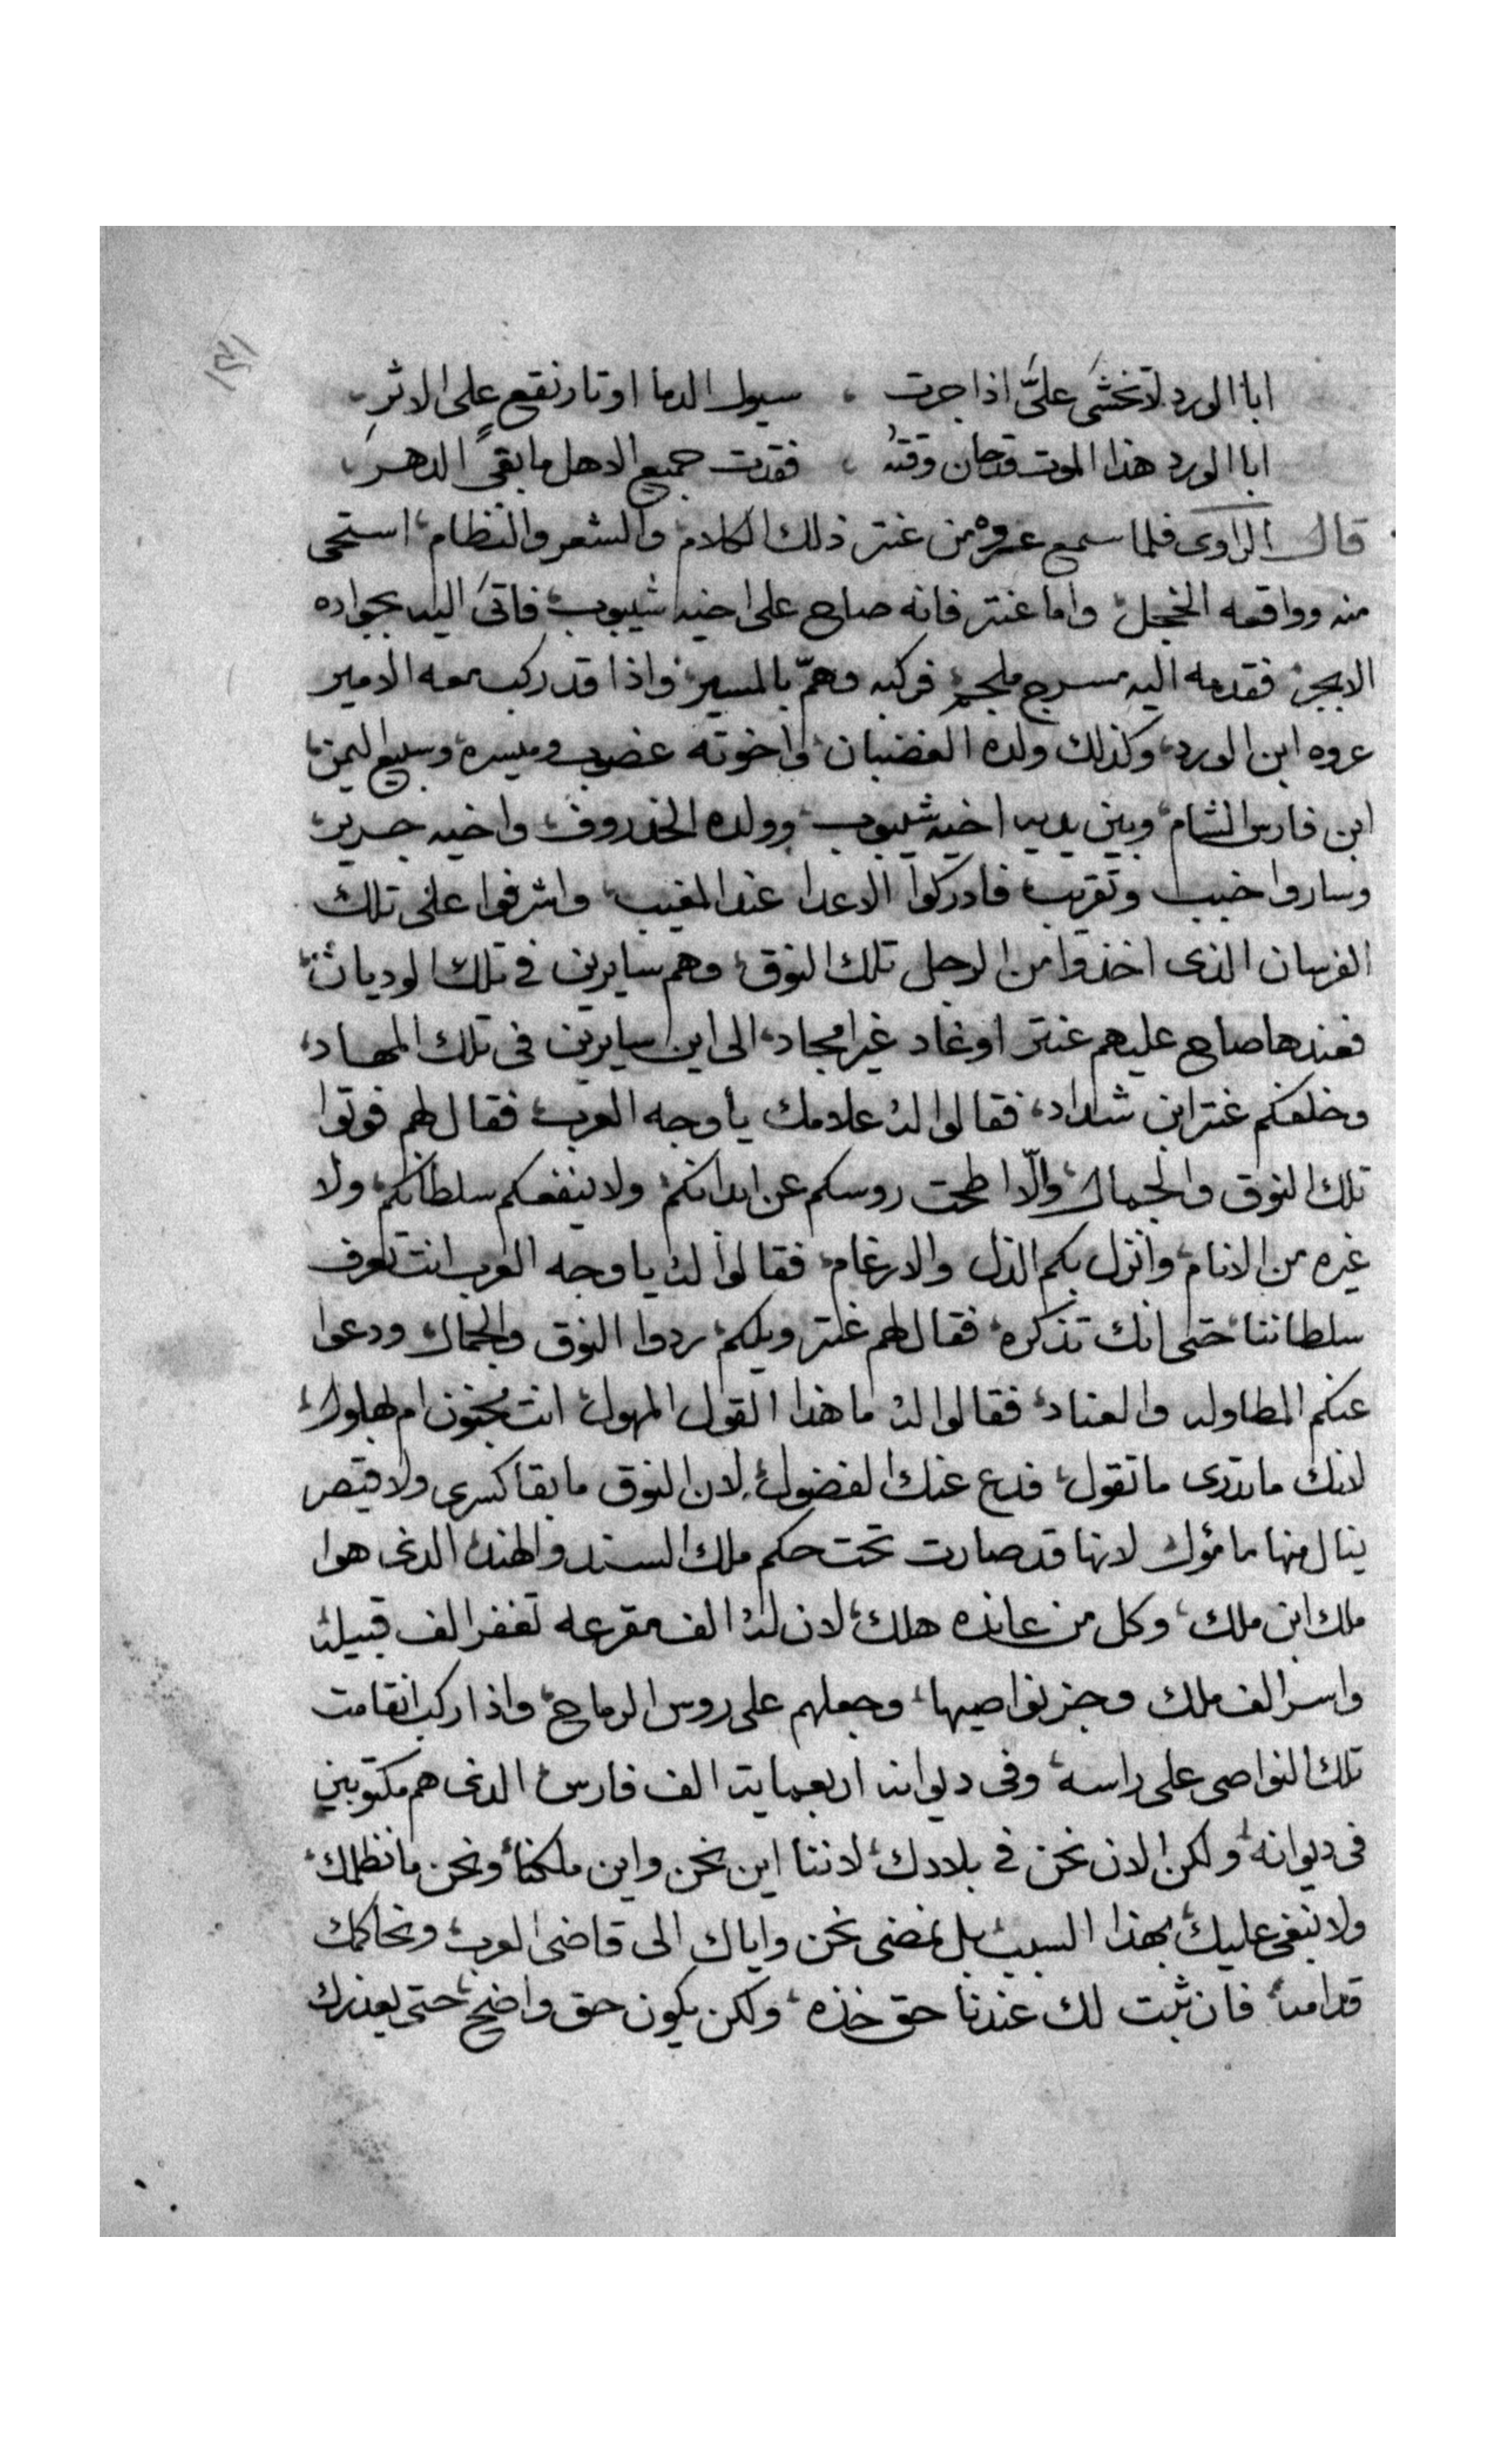 ١٢١
ابا الورد لا تخشى علىّ اذا جرت ، سيول الدما او تار نقع على الاثر
ابا الورد هذا الموت قد حان وقته ، فقدت جميع الاهل ما بقى الدهر
قال الراوى فلما سمع عروه من عنتر ذلك الكلام والشعر والنظام استحى
منه وواقعه الخجل واما عنتر فانه صاح على اخيه شيبوب فاتى اليه بجواده
الابجر فقدمه اليه مسرج ملجم فركبه وهمّ بالمسير واذا قد ركب معه الامير
عروه ابن الورد وكذلك ولده الغضبان واخوته غضوب وميسره وسبيع اليمن
ابن فارس الشام وبين يديه اخيه شيبوب وولده الخذروف واخيه جرير
وساروا خبب وتقريب فادركوا الاعدا عند المغيب واشرفوا على تلك
الفرسان الذى اخذوا من الرجل تلك النوق وهم سايرين فى تلك الوديان
فعندها صاح عليهم عنتر اوغاد غير امجاد الى اين سايرين فى تلك المهاد
وخلفكم عنتر ابن شداد فقالوا له علامك يا وجه العرب فقال لهم فوتوا
تلك النوق والجمال والّا اطحت روسكم عن ابدانكم ولا ينفعكم سلطانكم ولا
غيره من الانام وانزل بكم الذل والارغام فقالوا له يا وجه العرب انت تعرف
سلطاننا حتى انك تذكره فقال لهم عنتر ويلكم ردوا النوق والجمال ودعوا
عنكم المطاوله والعناد فقالوا له ما هذا القول المهول انت مجنون ام بهلول
لانك ما تدرى ما تقول فدع عنك الفضول لان النوق ما بقا كسرى ولا قيصر
ينال منها مامؤل لانها قد صارت تحت حكم ملك السند والهند الذى هوا
ملك ابن ملك وكل من عانده هلك لان له الف مقرعه تغفر الف قبيله
واسر الف ملك وجز نواصيها وجعلهم على روس الرماح واذا ركب انقامت
تلك النواصى على راسه وفى ديوانه اربعمايه الف فارس الذى هم مكتوبين
فى ديوانه ولكن الان نحن فى بلادك لاننا اين نحن واين ملكنا ونحن ما نظلمك
ولا نبغى عليك بهذا السبب بل نمضى نحن واياك الى قاضى العرب ونحاكمك
قدامه فان ثبت لك عندنا حق خذه ولكن يكون حق واضح حتى يعذرك